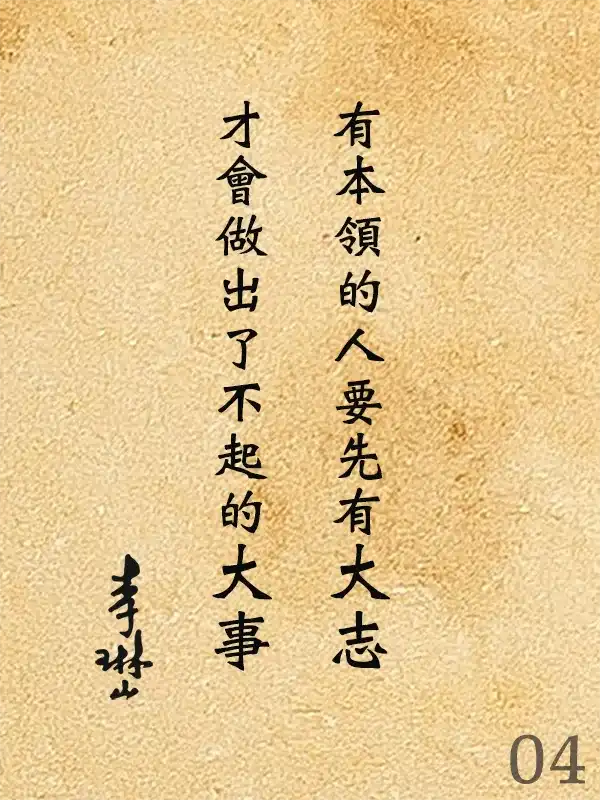 有本領的人要先有大志
才會做出了不起的大事
李琳山
04